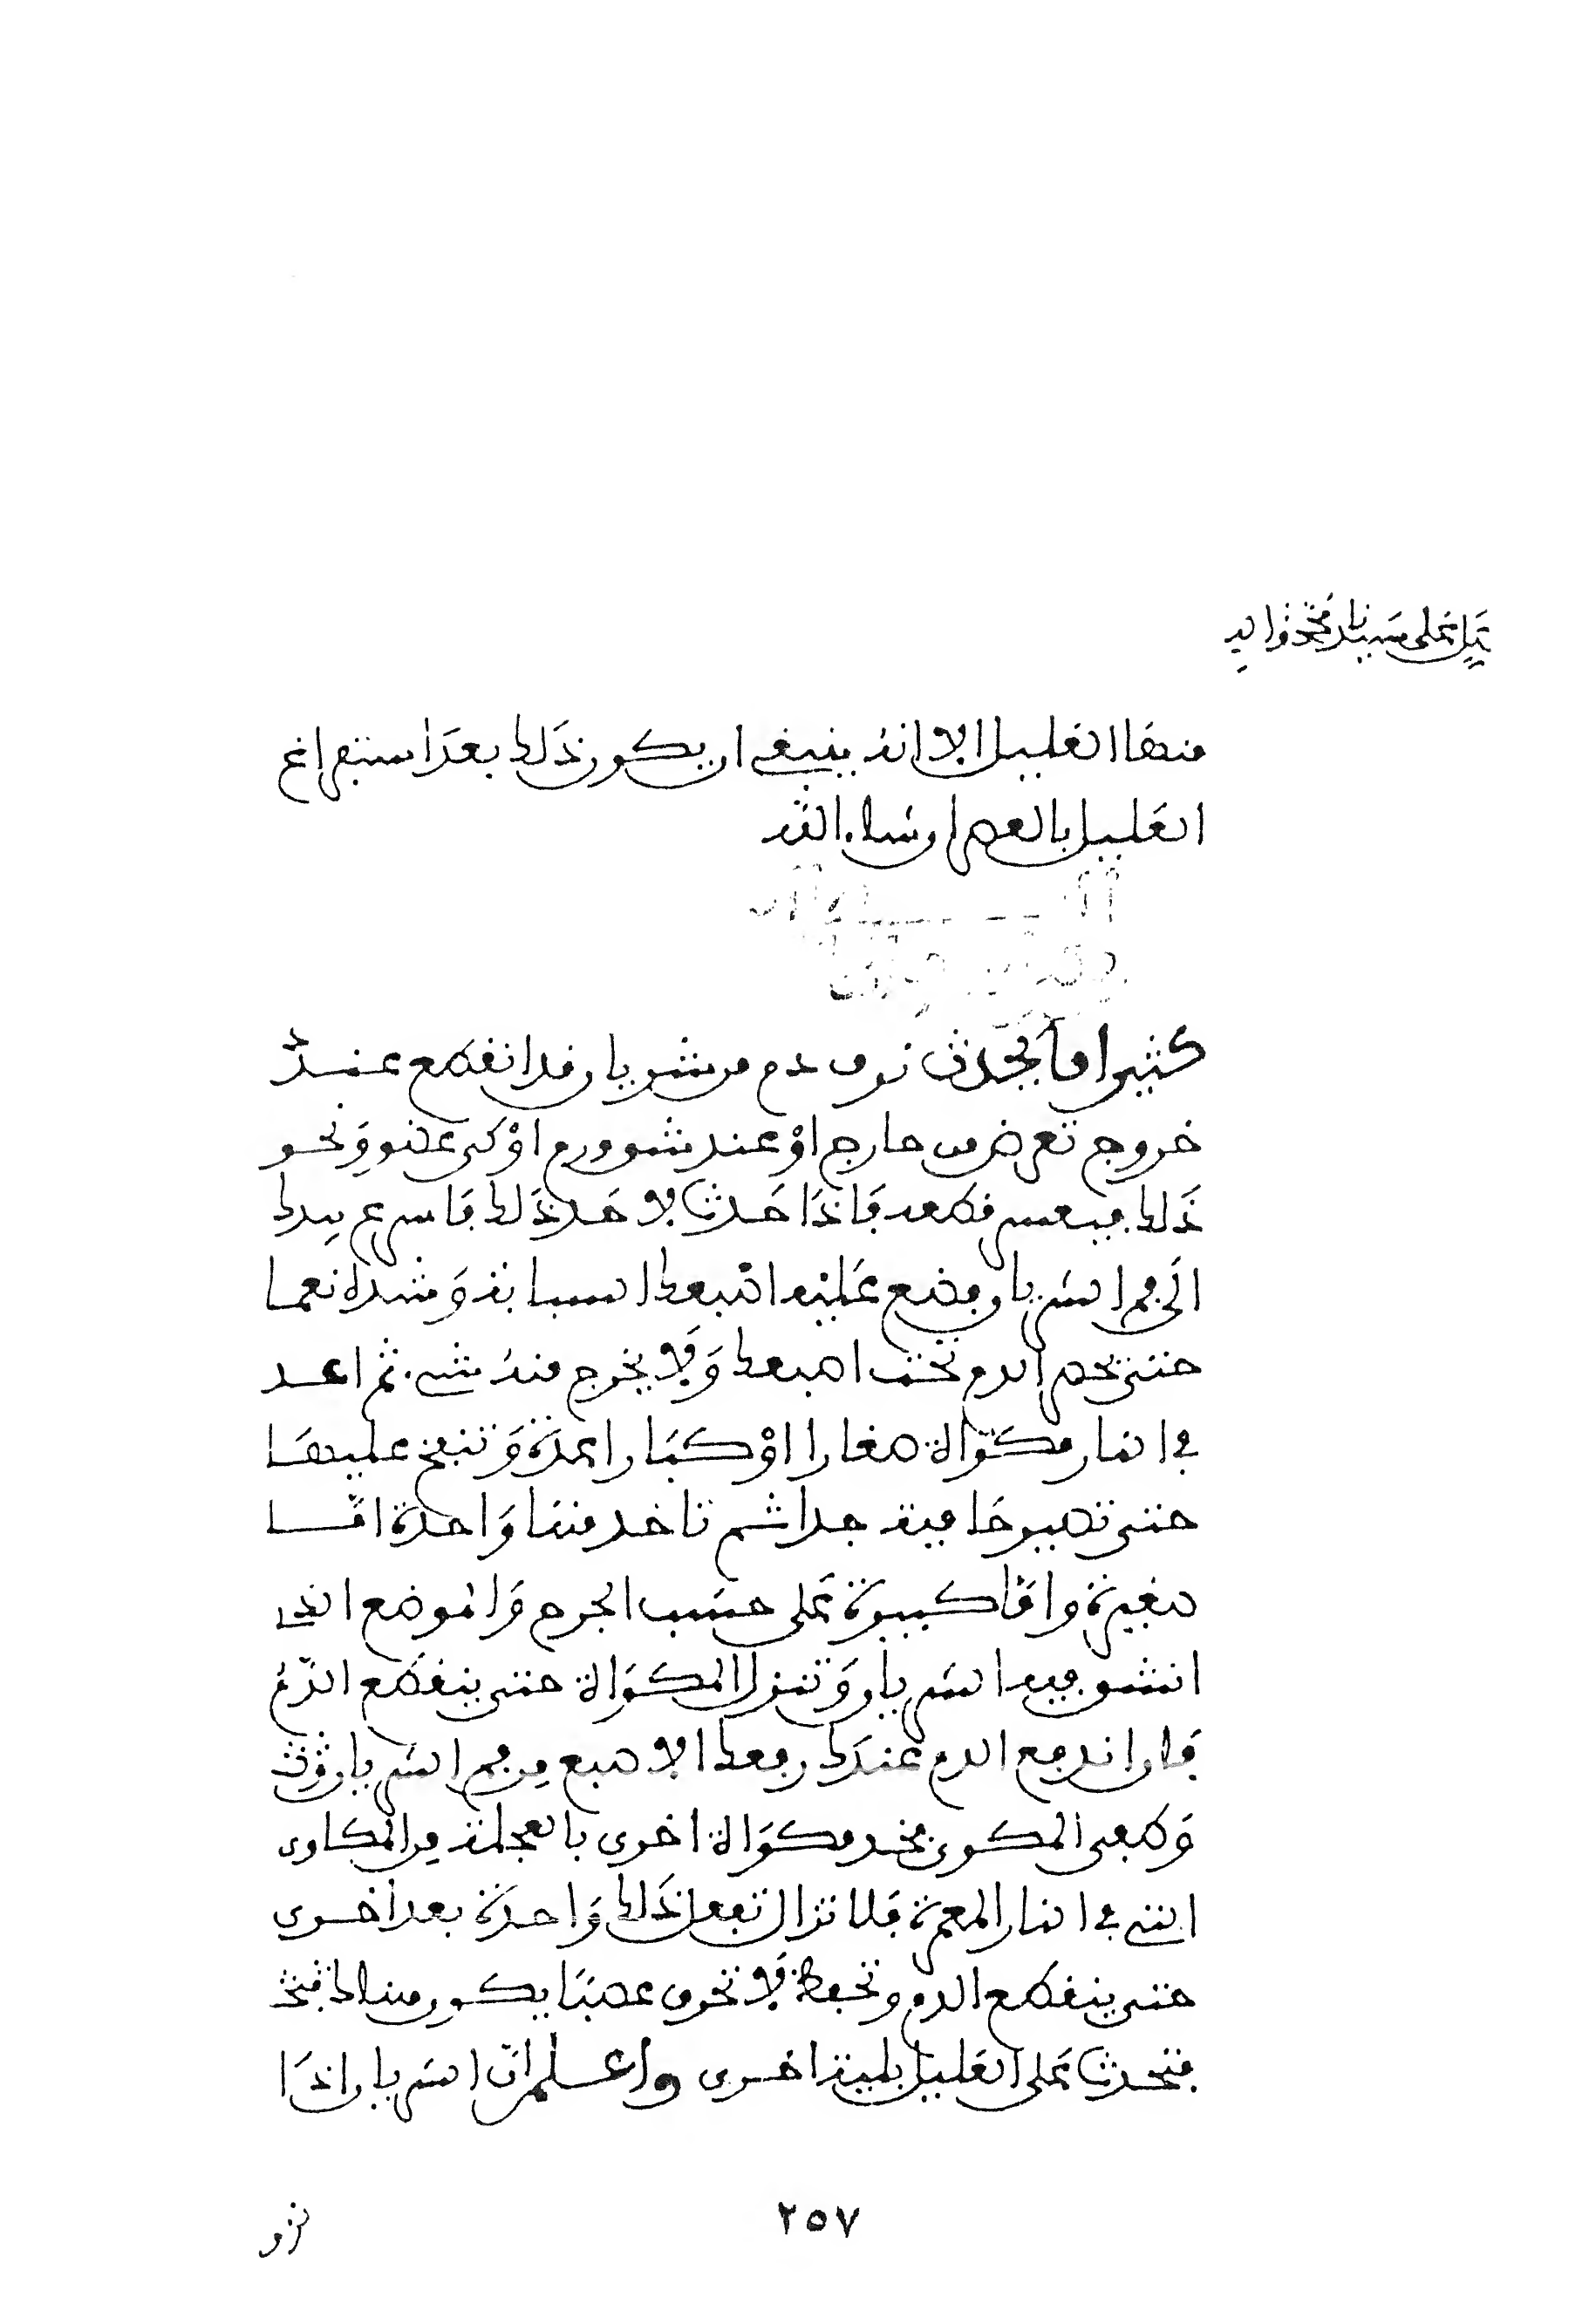 صل على سيدنا محمد واله
منها العليل الا انه ينبغي ان يكون ذلك بعد استفراغ
العليل بالفصد ان شاء الله
كثيرا ما يحدث نزف دم من شريان قد انقطع عند
خروج تعرض من خارج او عند شق ورم او كي عضو ونحو
ذلك فيعسر قطعه فاذا حدث لاحد ذلك فاسرع بيدك
الى فم الشريان فضع عليه اصبعك السبابة وشده نعما
حتى يحصر الدم تحت اصبعك ولا يخرج منه شيء ثم اعد
في النار مكواة صغارا او كبارا عدة وتنفخ عليها
حتى تصير حامية جدا ثم تاخذ منها واحدة اما
صغيرة واما كبيرة على حسب الجرح والموضع الذي
انشق فيه الشريان وتنزل المكواة حتى ينقطع الدم
فان اندفع الدم عندك رفعك الاصبع من فم الشريان وثب
وطفى المكوى فخد مكواة اخرى بالعجلة من المكاوى
التي في النار المعمرة فلا تزال تفعل ذلك واحدة بعد اخرى
حتى ينقطع الدم وتحفظ لا تحرق عصبا يكون هنالك فتحد
فتحدث على العليل بلية اخرى واعلم ان الشريان اذا
٢٥٧
نزو